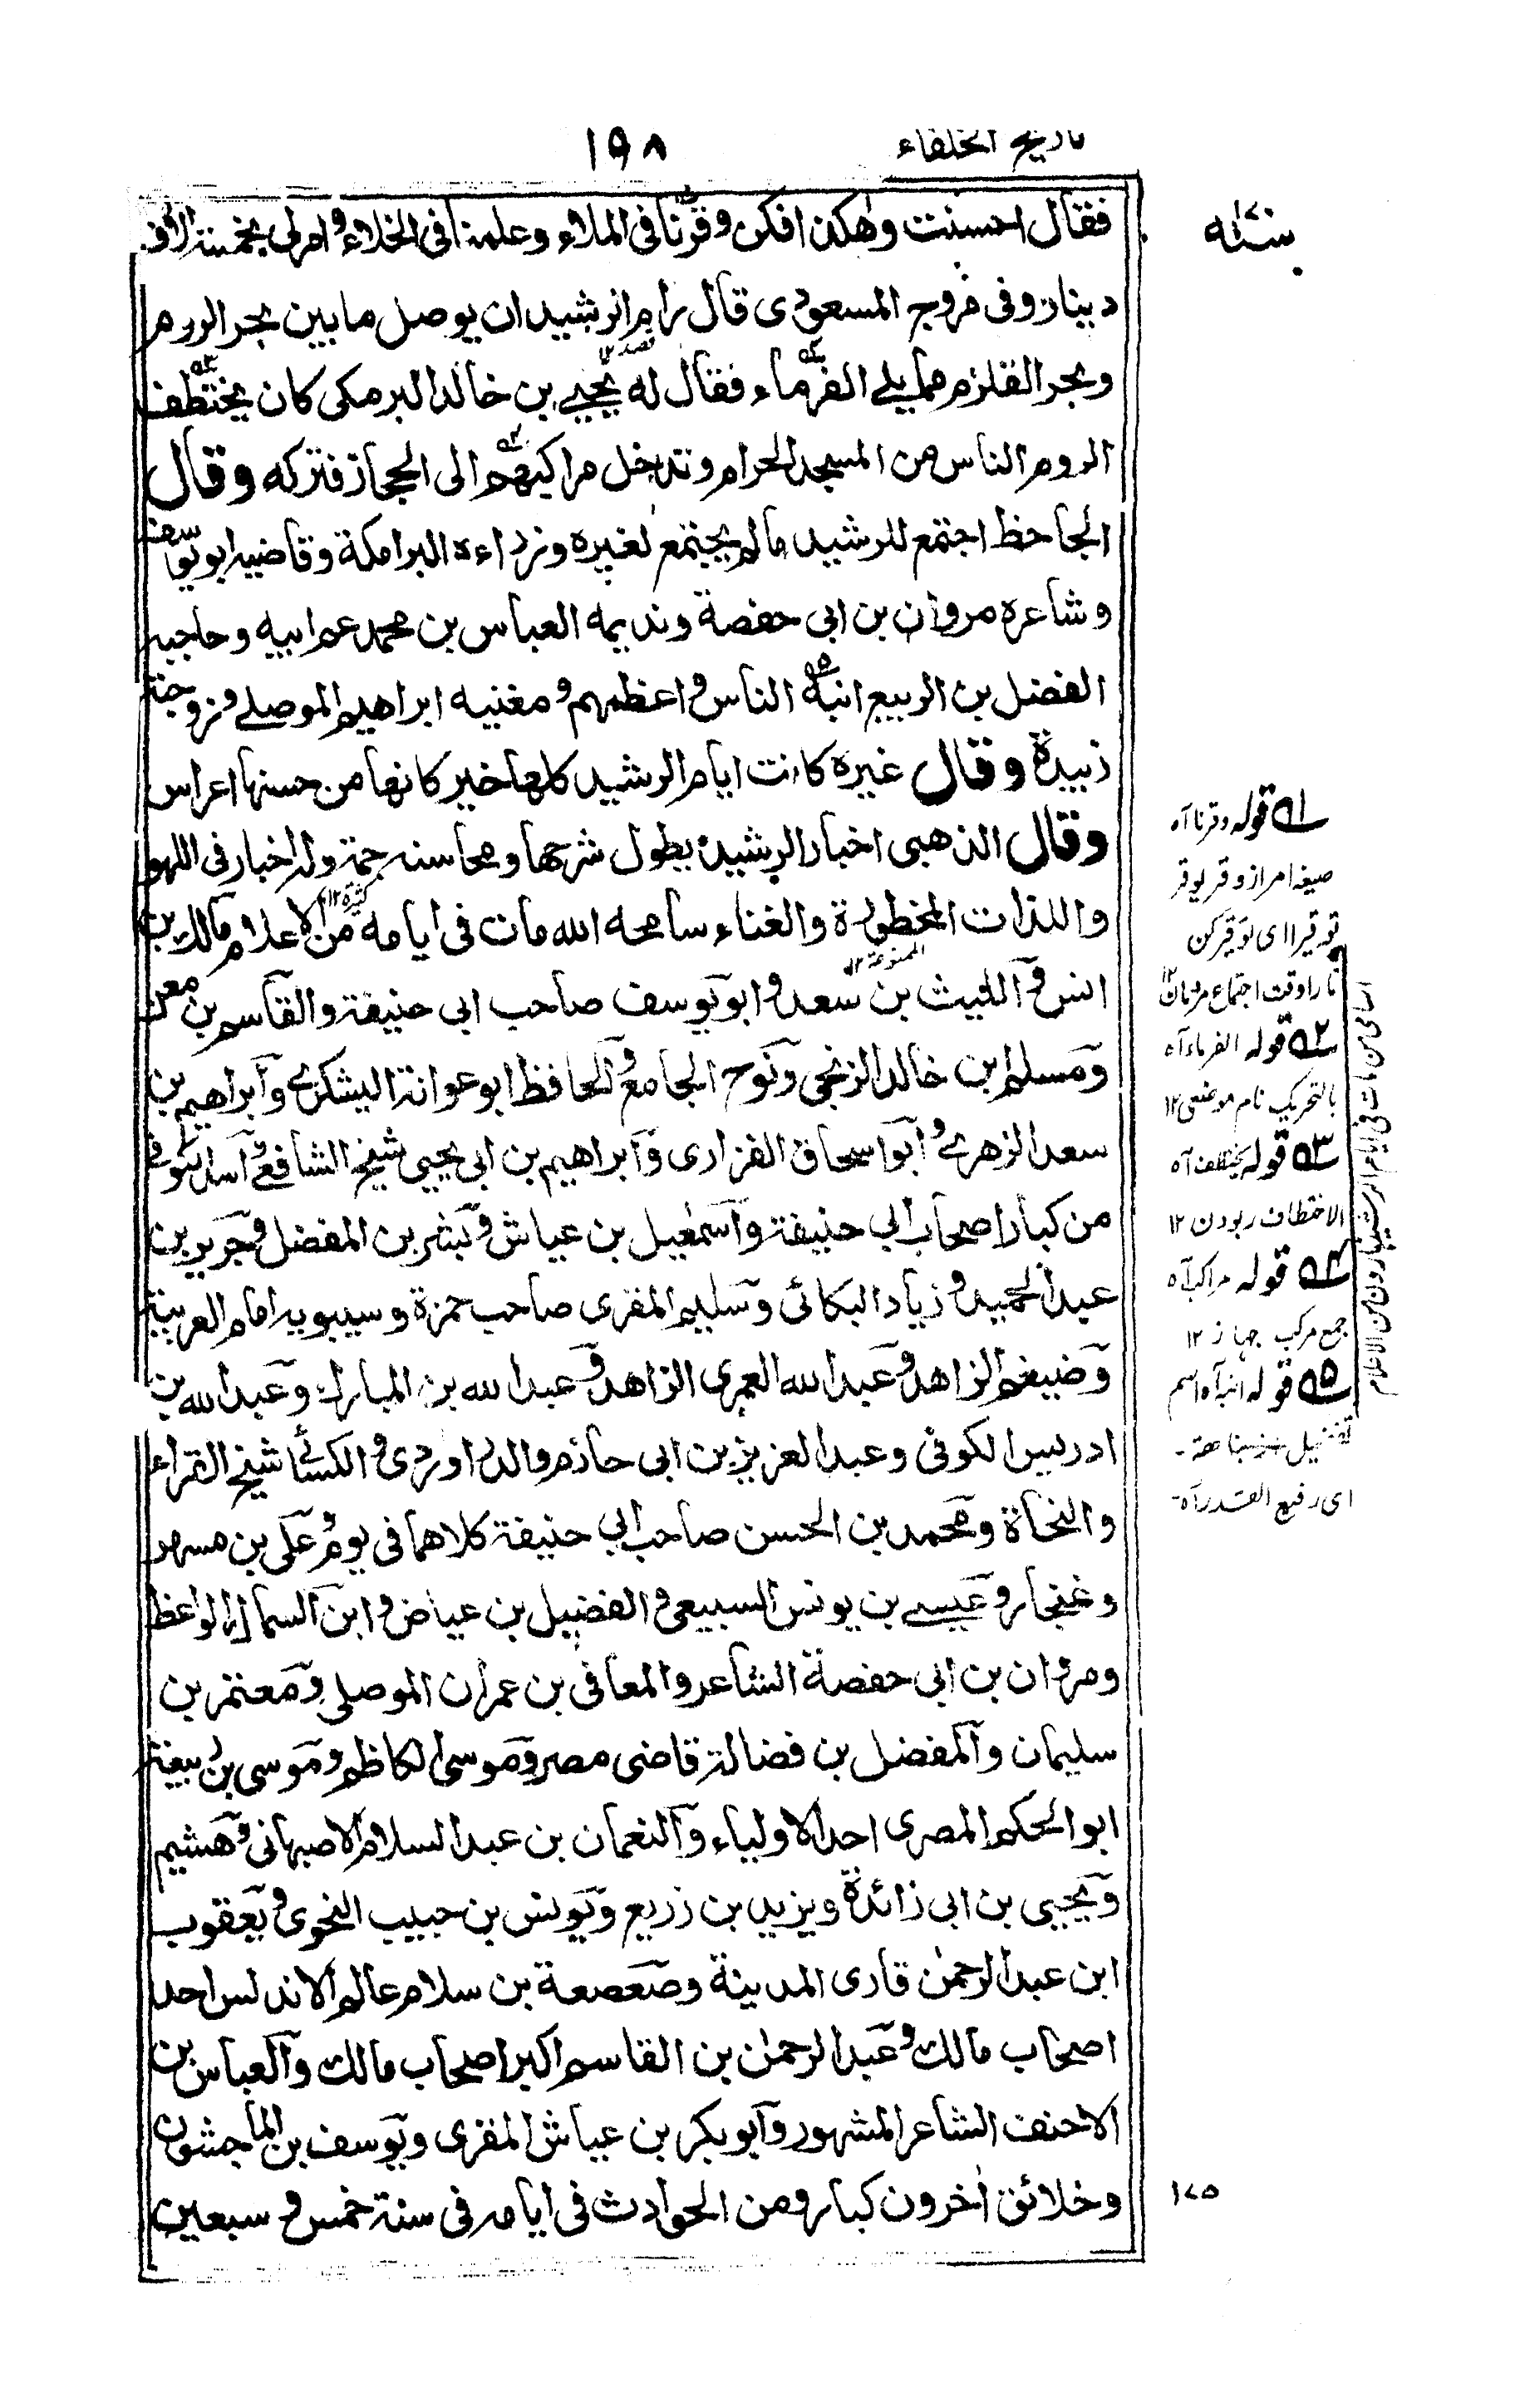 تاريخ الخلفاء
١٩٨
فقال احسنت وهكذا فكن وقرنا فى الملاء وعلمنا فى الخلاء وامرلى بخمسة الاف
دينار وفى مروج المسعودى قال رام الرشيد ان يوصل ما بين بحر الروم
وبحر القلزم مما يلى الفرماء فقال له يحيى بن خالد البرمكى كان يختطف
الروم الناس من المسجد الحرام وتدخل مراكبهم الى الحجاز فتركه وقال
الجاحظ اجتمع للرشيد مالم يجتمع لغيره وزراءه البرامكة وقاضيه ابو يوسف
وشاعره مروان بن ابى حفصة ونديمه العباس بن محمد عم ابيه وحاجبه
الفضل بن الربيع انبه الناس واعظمهم ومغنيه ابراهيم الموصلے وزوجته
زبيدة وقال غيره كانت ايام الرشيد كلها خير كانها من حسنها اعراس
وقال الذهبى اخبار الرشيد يطول شرحها ومحاسنه جمة وله اخبار فى اللهو
واللذات المحظورة والغناء سامحه الله مات فى ايامه من الاعلام مالك بن
انس والليث بن سعد وابو يوسف صاحب ابى حنيفة والقاسم بن معن
ومسلم ابن خالد الزنجى ونوح الجامع والحافظ ابو عوانة اليشكرے وابراهيم بن
سعد الزهرے وابو اسحاق الفزارى وابراهيم بن ابى يحيى شيخ الشافعى واسد الكوفى
من كبار اصحاب ابى حنيفة واسمٰعيل بن عياش وبشر بن المفضل وجرير بن
عبد الحميد وزياد البكائى وسليم المقرى صاحب حمزة وسيبويه امام العربية
وضيغم الزاهد وعبد الله العمرى الزاهد وعبد الله بن المبارك وعبد الله بن
ادريس الكوفى وعبد العزيز بن ابى حازم والدراوردى والكسائى شيخ القراء
والنحاة ومحمد بن الحسن صاحب ابى حنيفة كلاهما فى يوم وعلى بن مسهر
وغنجار وعيسے بن يونس السبيعى والفضيل بن عياض وابن السماك الواعظ
ومروان بن ابى حفصة الشاعر والمعافى بن عمران الموصلى ومعتمر بن
سليمان والمفضل بن فضالة قاضى مصر وموسى الكاظم وموسى بن ربيعة
ابو الحكم المصرى احد الاولياء والنعمان بن عبد السلام الاصبهانى وهشيم
ويحيى بن ابى زائدة ويزيد بن زريع ويونس بن حبيب النحوى ويعقوب
ابن عبد الرحمٰن قارى المدينة وصعصعة بن سلام عالم الاندلس احد
اصحاب مالك وعبد الرحمٰن بن القاسم اكبر اصحاب مالك والعباس بن
الاحنف الشاعر المشهور وابو بكر بن عياش المقرى ويوسف بن الماجشون
وخلائق اٰخرون كبار ومن الحوادث فى ايامه فى سنة خمس وسبعين
قصد ١٢
كثيرة ١٢
الممنوعة ١٢
١ قوله وقرنا آه
صيغه امراز وقر يوقر
توقيرا اى توقيركن
مارا وقت اجتماع مردمان ١٢
٢ قوله الفرماء آه
بالتحريك نام موضعى ١٢
٣ قوله يختطف آه
الاختطاف ربودن ١٢
٤ قوله مراكب آه
جمع مركب جهاز ١٢
٥ قوله انبه آه اسم
تفضيل نباهة-
اى رفيع القدر آه-
اسامى من مات فى ايام الرشيد هارون من الاعلام
١٧٥